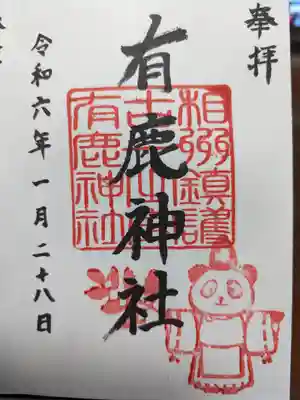 奉拝
有鹿神社
相模鎮護
有鹿神社
令和六年一月二十八日